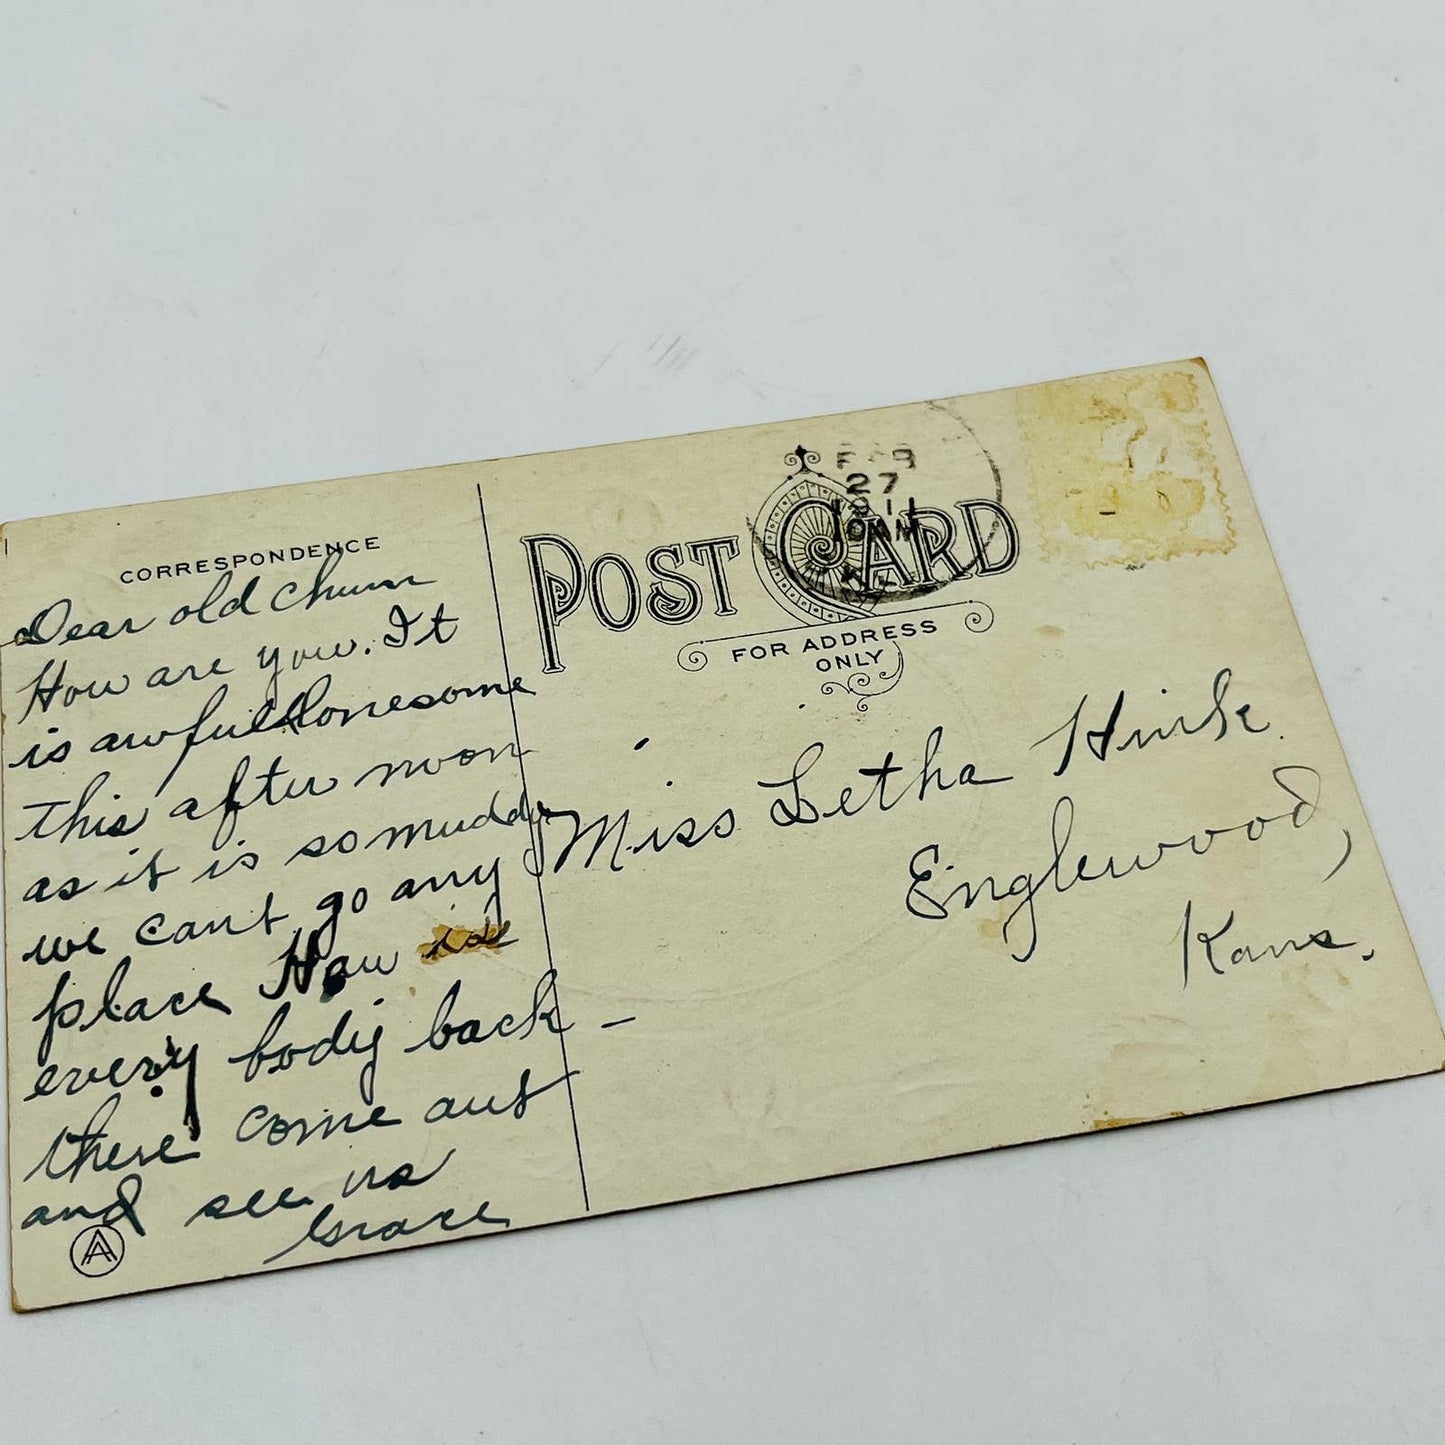 CORRESPONDENCE
Dear old chum
How are you. It
is awful lonesome
this after noon
as it is so muddy
we cant go any
place How is
every body back –
there come out
and see us
Grace
AA
POST CARD
FOR ADDRESS
ONLY
27
1911
Miss Letha
Englewood,
Kans.